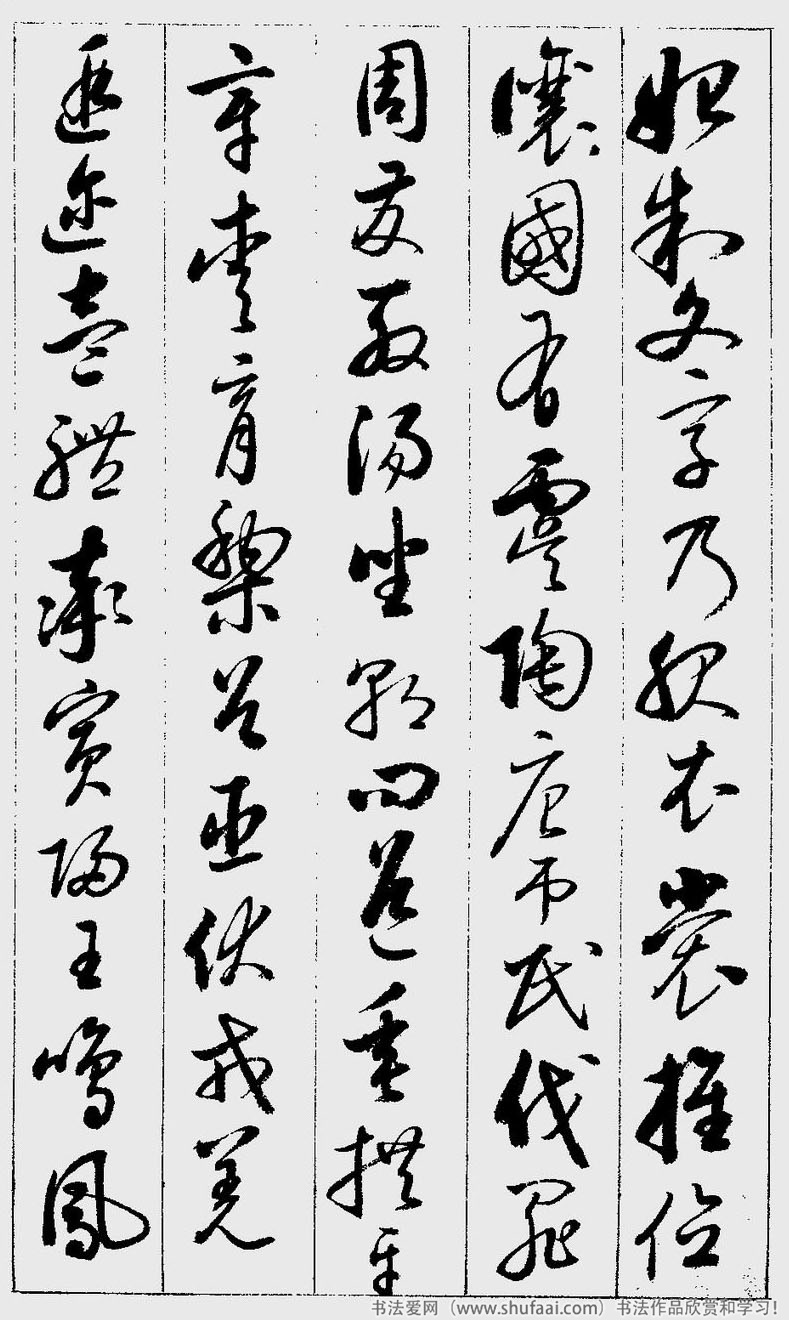 始制文字乃服衣裳推位
讓國有虞陶唐吊民伐罪
周發殷湯坐朝問道垂拱平
章愛育黎首臣伏戎羌
遐迩壹體率賓歸王鳴鳳
书法爱网（www.shufaai.com）书法作品欣赏和学习！